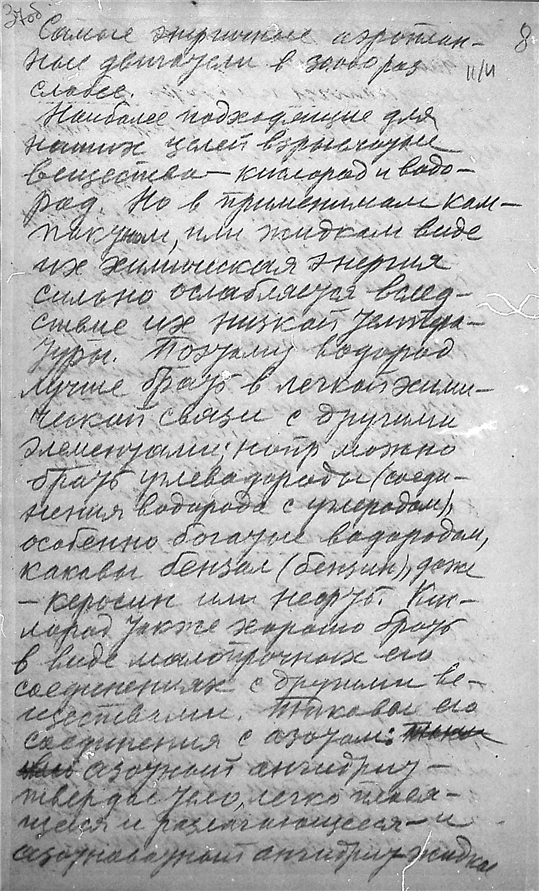 37об
8
11/И
Самые энергичные аэроплан-
ные двигатели в 30000 раз
слабее.
Наиболее подходящие для
наших целей взрывчатые
вещества – кислород и водо-
род. Но в применимом ком-
пактном, или жидком виде
их химическая энергия
сильно ослабляется вслед-
ствие их низкой темпера-
туры. Поэтому водород
лучше брать в легкой хими-
ческой связи с другими
элементами; напр можно
брать углеводороды (соеди-
нения водорода с углеродом),
особенно богатые водородом,
каковы бензол (бензин), даже
– керосин или нефть. Кис-
лород также хорошо брать
в виде малопрочных его
соединениях с другими ве-
ществами. Таковы его
соединения с азотом:
азотный ангидрит –
твердое тело, легко плавя-
щееся и разлагающееся – и
азотноватый ангидрит – жидкое